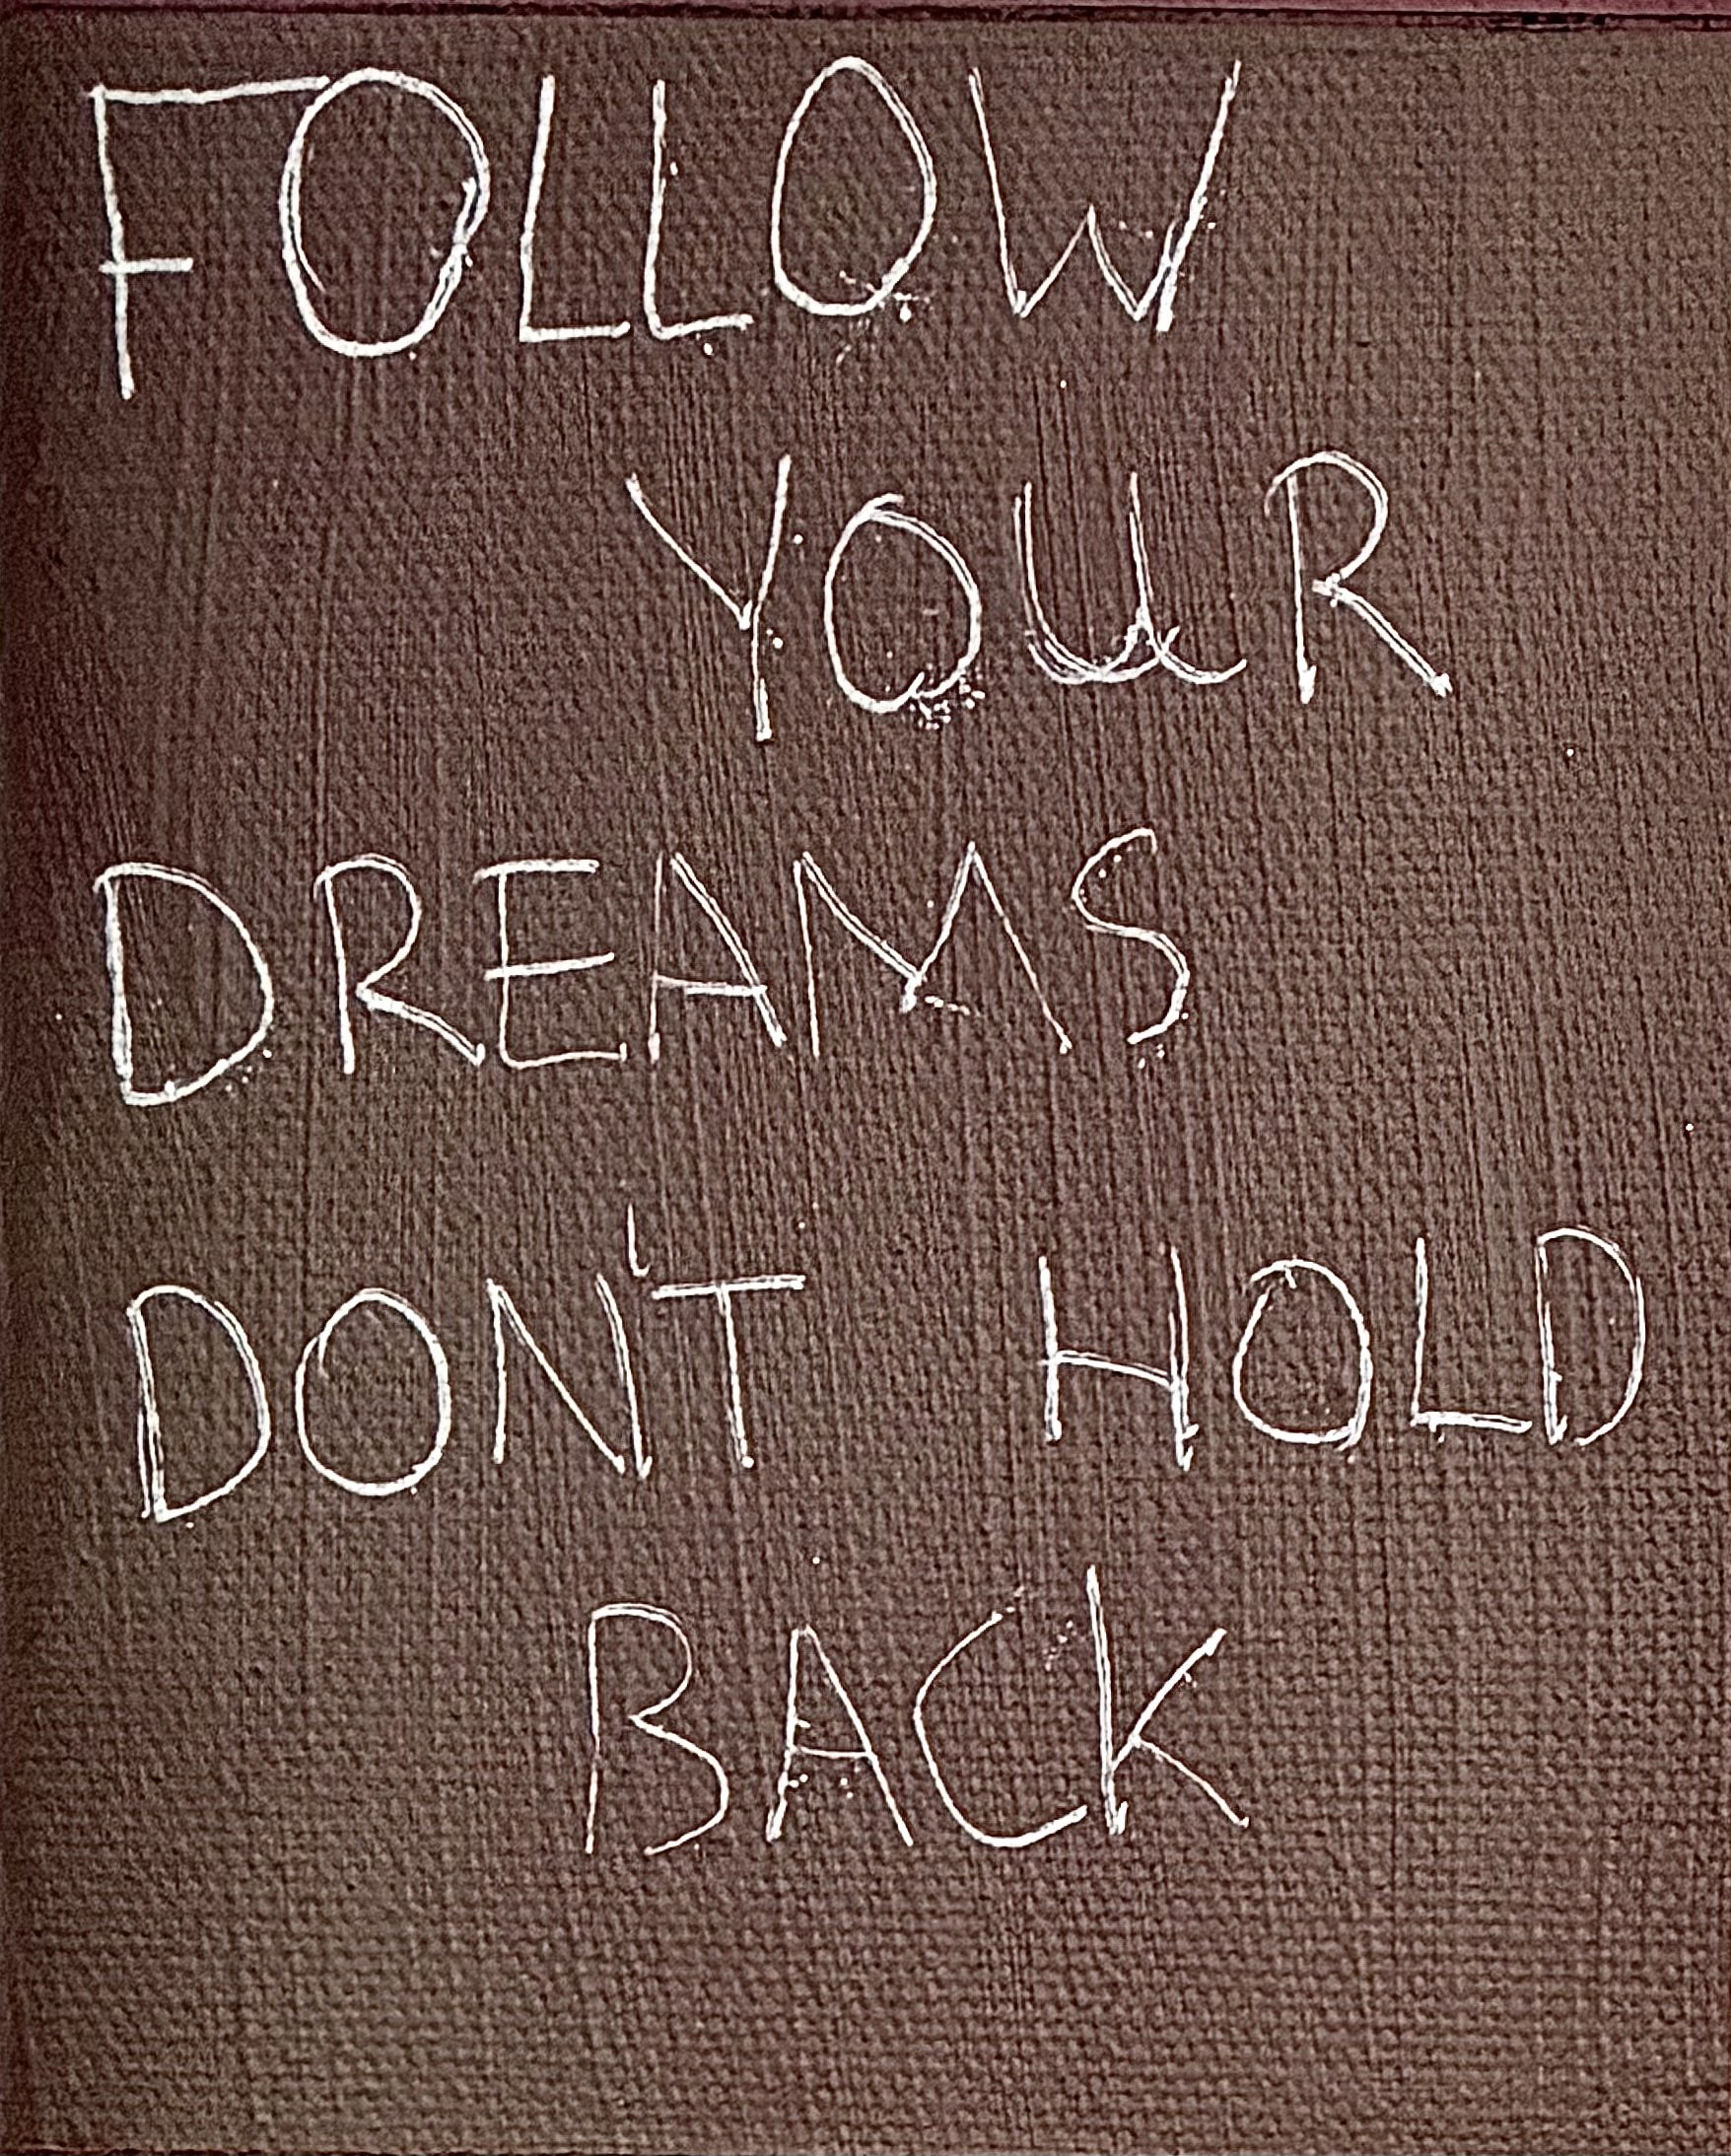 FOLLOW
YOUR
DREAMS
DON'T HOLD
BACK